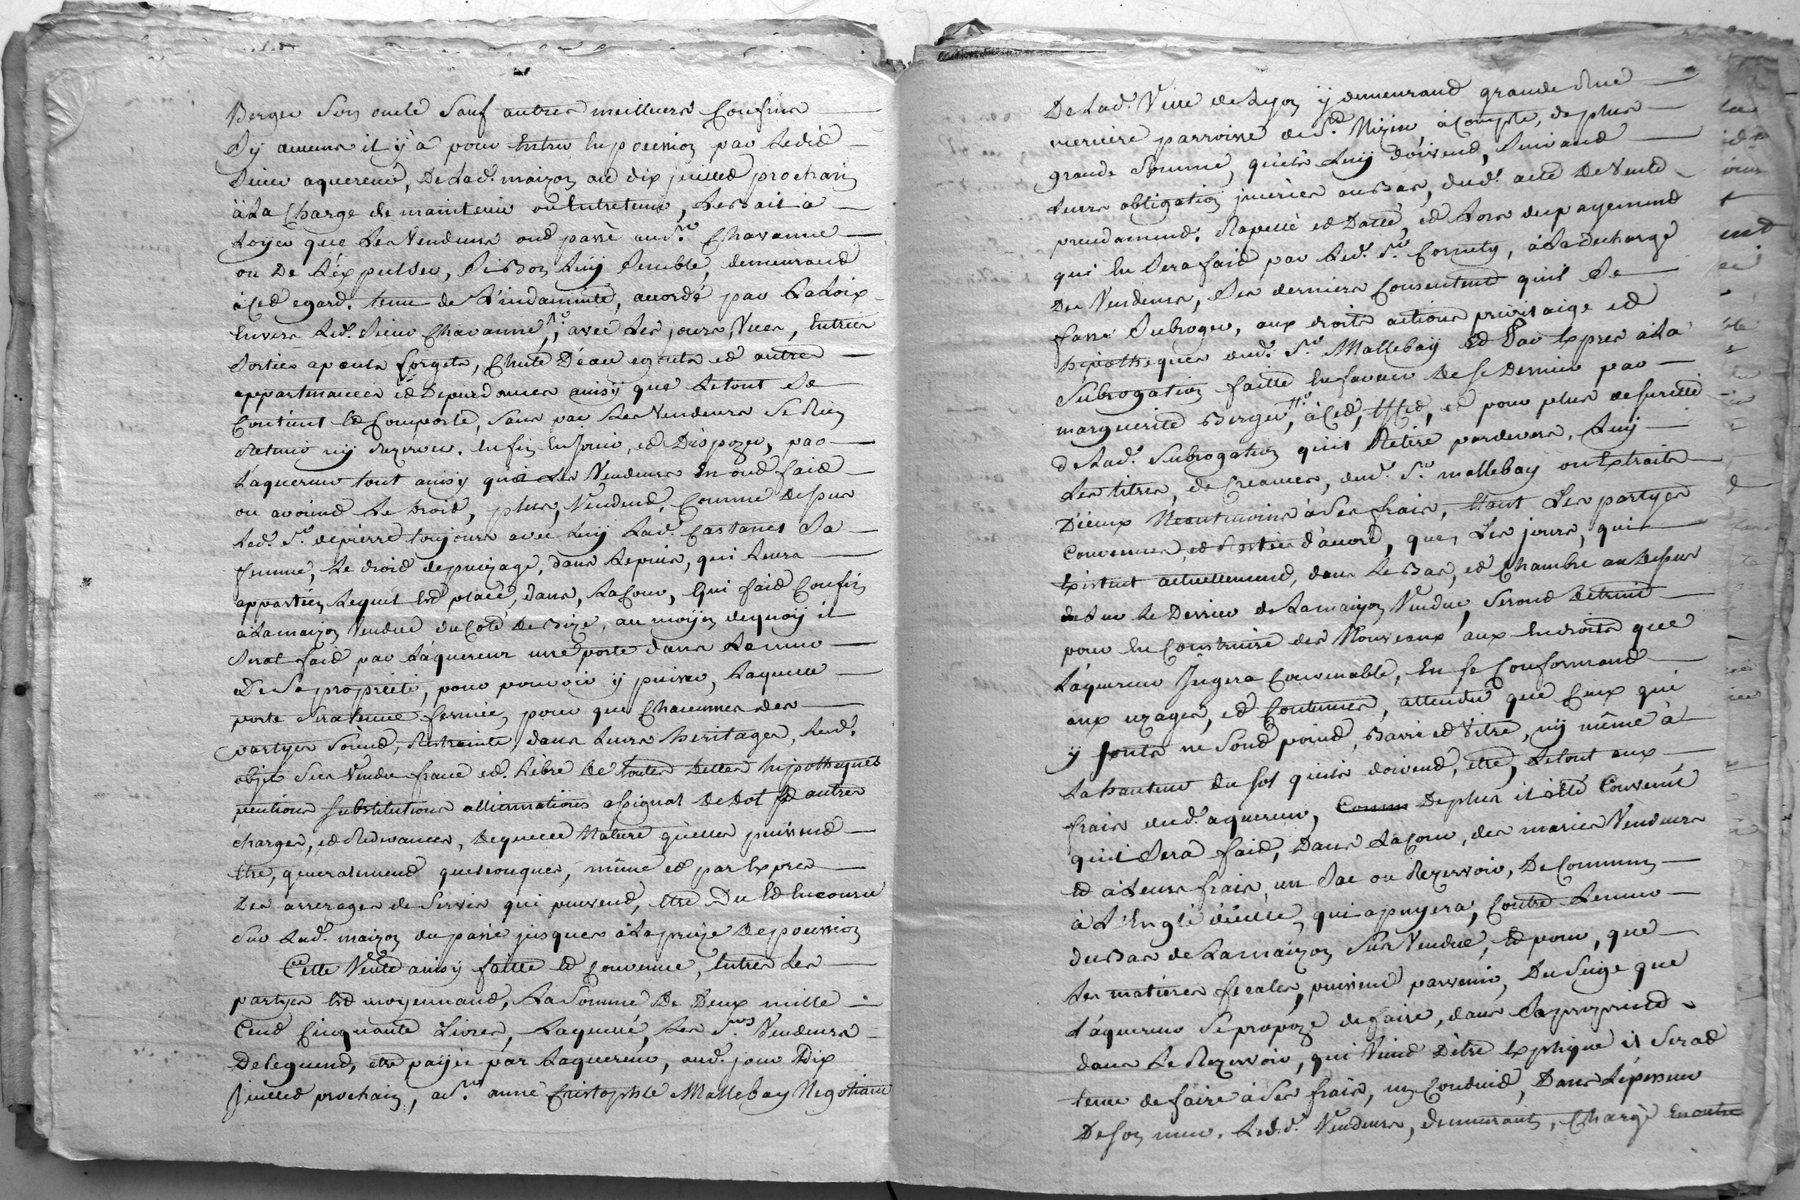 Berger Son oncle Sauf autres meilleurs Confins
Sy aucuns il y à pour Entrer En possession par Ledit
Sieur aquereur, De Lad. maizon au dix juillet prochain
à La Charge de maintenir ou Entretenir, Le Bail à
Loyer que Les Vendeurs ont passé aud. Sr. Chavanne
ou De L'éxpulser, Si Bon Luy Semble, demeurand
à Cet egard. tenu de L'indamnité, accordé par La Loix
Envers Led. Sieur Chavanne, avec Les jours Vues, Entrées
Sorties apents forgets, Chute D'eau egouts et autres
appartenances et Dependances ainsy que Letout Se
Contient Et Comporte, Sans par Les Vendeurs Se Rien
Retenir ny Rezerver. Enfin En Jouir, et Dispozer, par
L'aquereur tout ainsy que Les Vendeurs En ont faid
ou avoient Le droit, plus, Vendent, Comme dessus
Led. Sr. depierre toujours avec Luy Lad. Castanet Sa
femme, Le droid depuizage, dans Lepuis, qui Leurs
appartien Lequel Est placé, dans, La Cour, Qui faid Confin
à Lamaizon Vendue du Coté De Bize, au moyen dequoy il
Serat faid par L'aquereur une porte dans Le mur
De Sa proprieté, pour pouvoir y puiser, Laquelle
porte Sera tenue fermée, pour que Chacunnes des
partyes Soient, Restrainte, dans Leurs heritages, Led.
objet Sus Vendu franc et Libre De toutes dettes hipotheques
pentions substitutions alliennations assignat De dot Et autres
charges, et Redevances, Dequelle Nature qu'elles puissent
Etre, generalement quelconques, même et par Expres
Des arrerages de Servis qui peuvend, Etre Du Et Encourru
Sur Lad. maizon du passé jusques à La prize De possession
Cette Vente ainsy faitte Et Convenue, Entres Les
partyes Est moyennand, La Somme De Deux mille
Cent Cinquante Livres, Laquelle, Les Srs. Vendeurs
Deleguent, etre payée par Laquereur, aud. jour Dix
Juillet prochain, a Sr. anne Cristophle Mallebay Negotiant
De Lad. Ville de Lyon y demeurand grande Rue
merciere parroisse de St. Nizier, à Compte, de plus
grande Somme, qu'ils Luy doivend, Suivand
Leurs obligation inserées au Bas, dud. acte De Vente
precedamment. Rapellé et Datté et Lors du payement
qui En Sera faid par Led. Sr. Cornuty, à La decharge
Des Vendeurs, Ses derniers Consentent qu'il Se
fasse Subroger, aux droits actions privilaige et
hipotheques dud. Sr. Mallebay Et Par Expres à La
Subrogation faitte En faveur De Se Dernier par
marguerite Berger, à Cet, Effet, et pour plus de sureté
de Lad. Subrogation qu'il Retire pardevers, Luy
Les titres, de Creances, dud. Sr. mallebay ou Extraits
D'iceux Neantmoins à Ses frais, Etant Les partyes
Convenues, et d'acord, que, Les jours, qui
Existent actuellement, dans Le Bas, et Chambre au dessus
Sur Le Derrier de Lamaizon Vendue, Seront detruit
pour En Construire des Nouveaux aux Endroits que
L'aquereur Jugera Convenable, En Se Conformand
aux uzages, et Coutumes, attendu que Ceux qui
y sonts ne Sont point, Barré et Vitré, ny même à
La hauteur du Sol qu'ils doivend, etre, Letout aux
frais dud. aquereur, Comm De plus il à été Convenut
qu'il Sera faid, Dans La Cour, des maries Vendeurs
Et à Leurs frais, un Sac ou Rezervoir, De Commun
à L'Engle d'icelle, qui apuyera, Contre Le mur
du Bas de Lamaizon Sus Vendue, Et pour, que
Les matieres fecales, puissent parvenir, Du Siege que
L'aquereur Se propoze de faire, dans
dans Le Rezervoir, qui Vient D'etre Explique il Serat
tenu de faire à Ses frais, un Conduit, Dans L'épesseur
De Son mur. Lesd. Vendeurs, demeurants, Chargé Enoutre